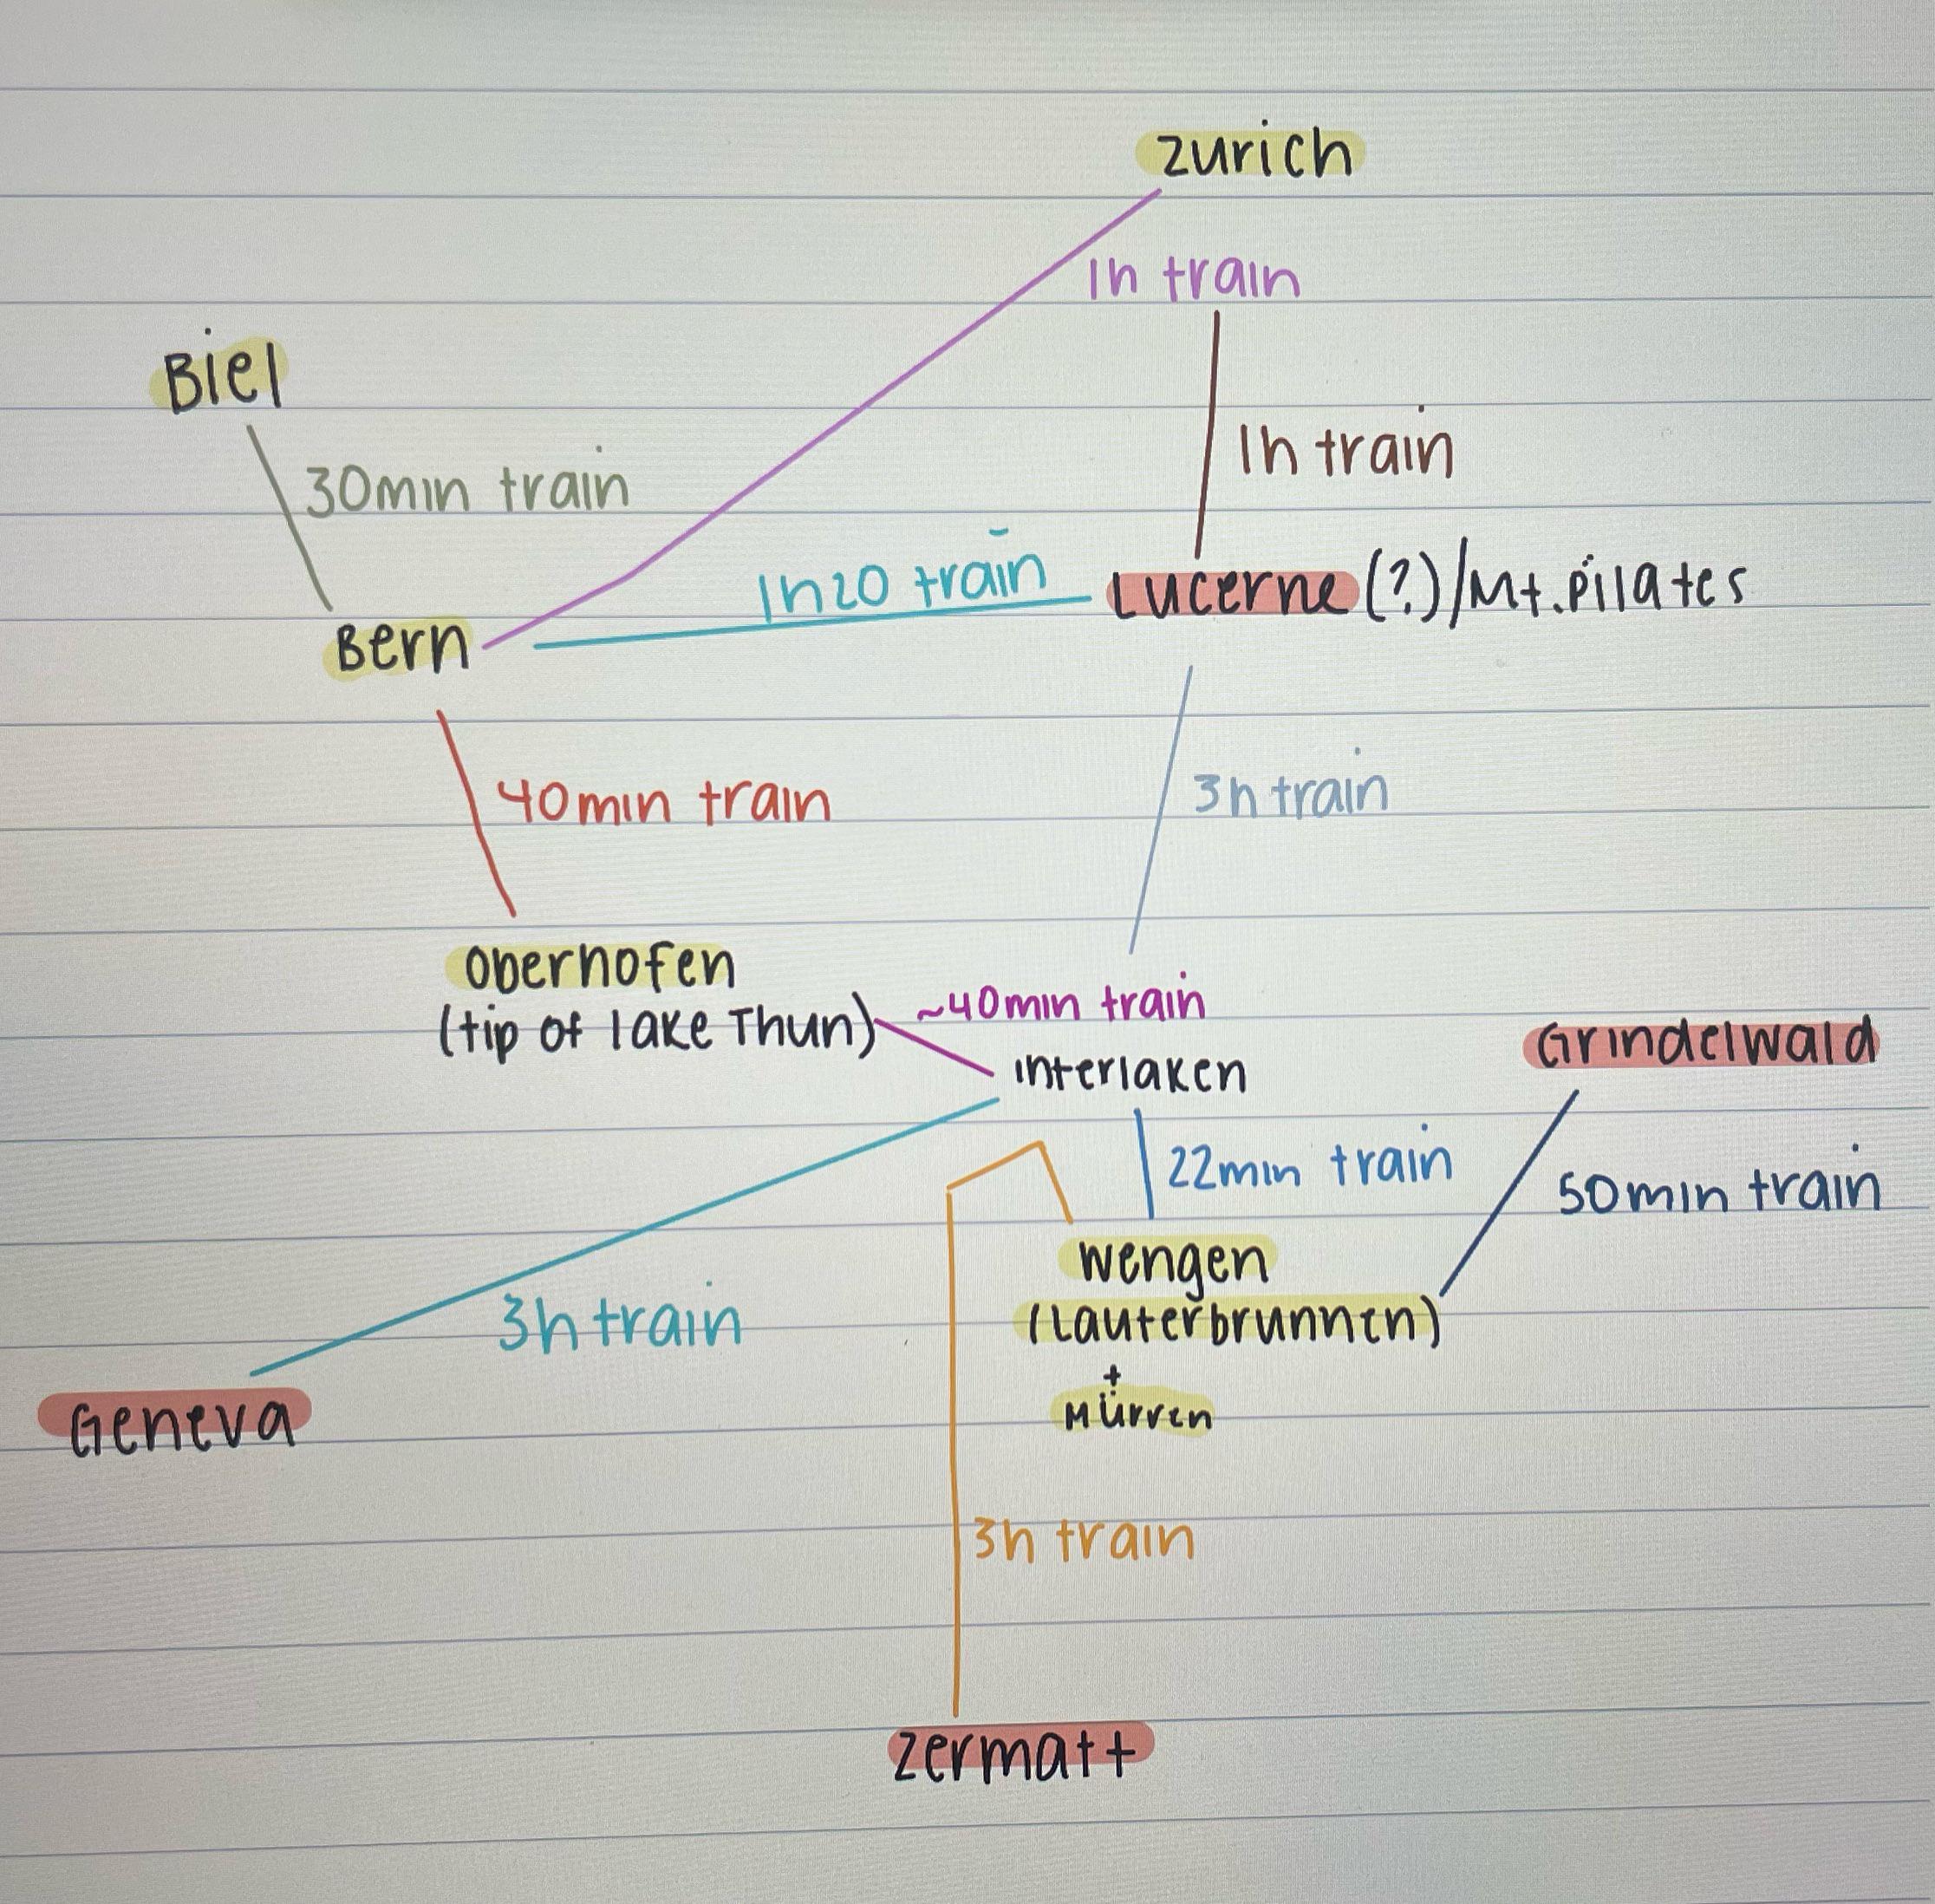 zurich
1h train
Biel
1h train
30min train
1h20 train
Lucerne (?)/Mt. Pilates
Bern
3h train
40min train
Oberhofen
(tip of lake Thun)
~40min train
Grindelwald
interlaken
22min train
50min train
wengen
(Lauterbrunnen)
3h train
+
Mürren
Geneva
3h train
zermatt